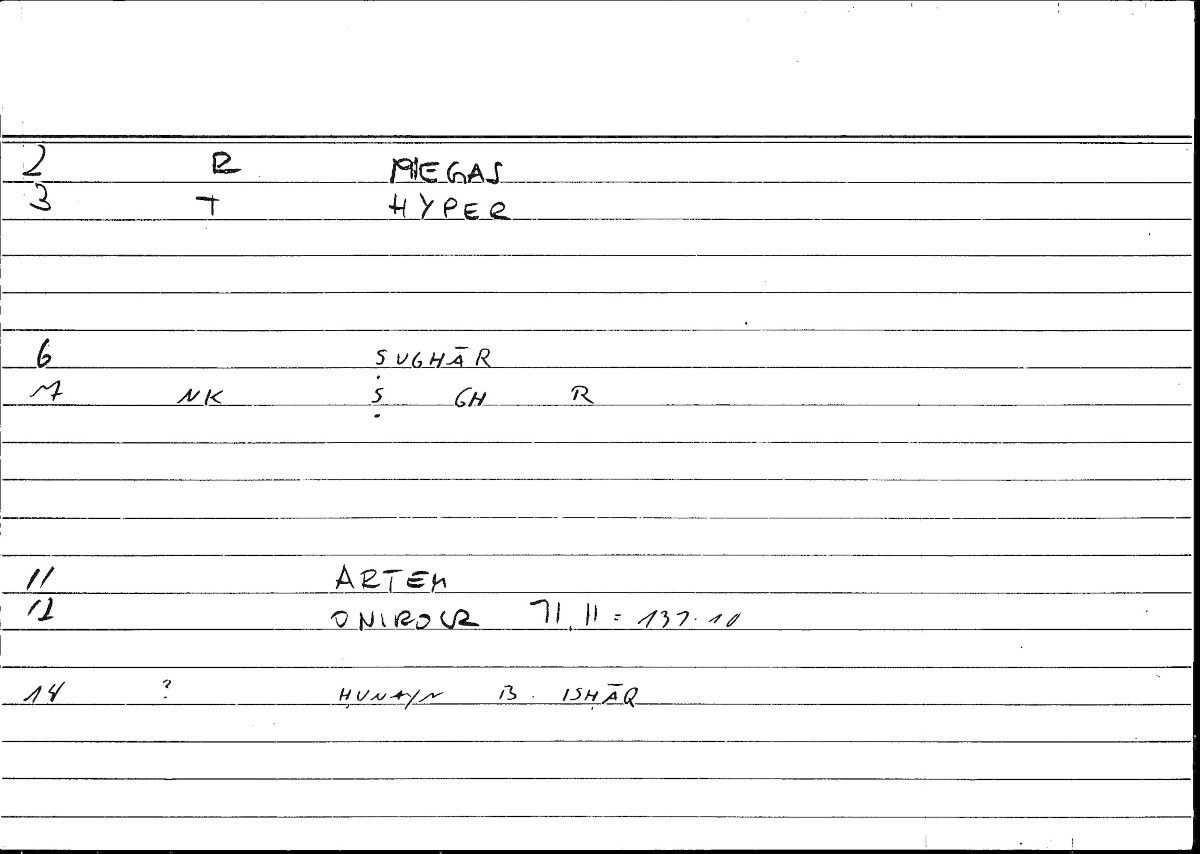 2 R MEGAS
3 T HYPER
6 ṢUGHĀR
7 NK Ṣ GH R
11 ARTEM
12 ONIROCR 71,11 = 137.10
14 ? ḤUNAYN B. ISḤĀQ